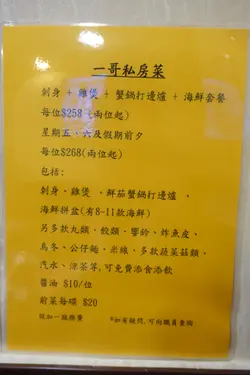 一哥私房菜
刺身 + 雞煲 + 蟹鍋打邊爐 + 海鮮套餐
每位$258 (兩位起)
星期五、六及假期前夕
每位$268(兩位起)
包括:
刺身、雞煲、鮮茄蟹鍋打邊爐、
海鮮拼盆(有8-11款海鮮)
另多款丸類、餃類、響鈴、炸魚皮、
烏冬、公仔麵、米線、多款蔬菜菇類、
汽水、涼茶等,可免費添食添飲
醬油 $10/位
前菜每碟 $20
設加一服務費
*如有疑問,可向職員查詢